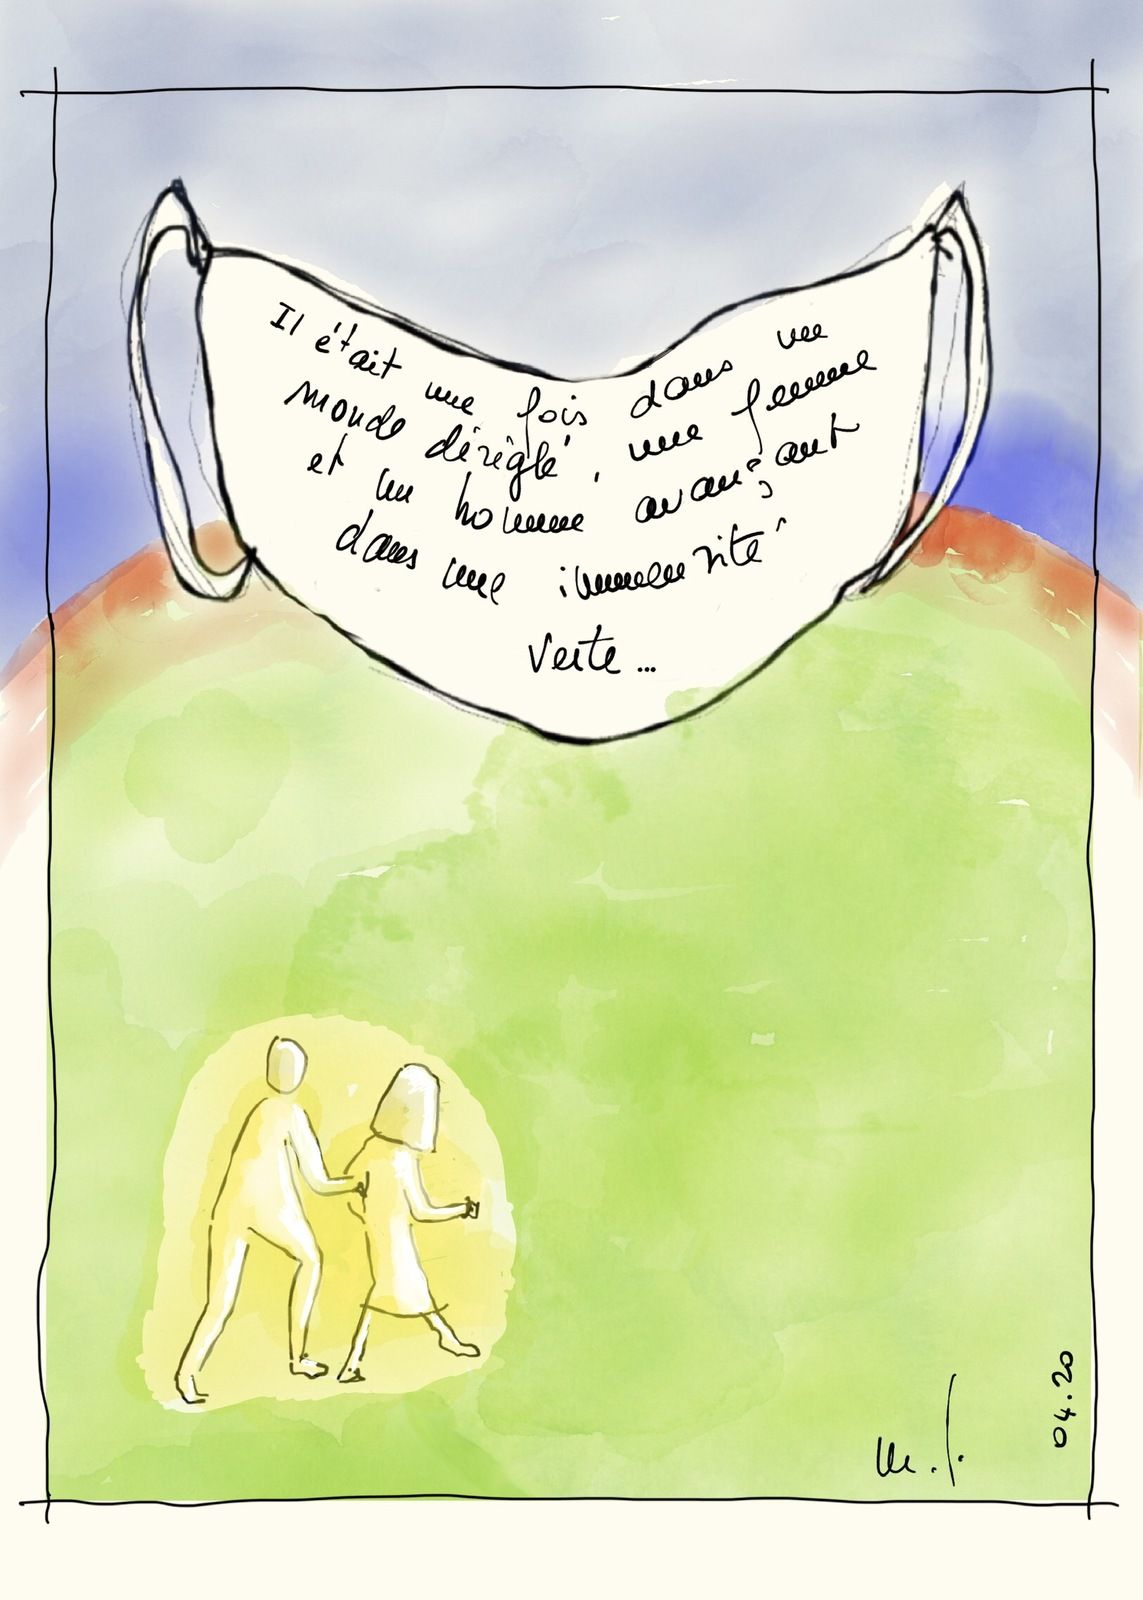 Il était une fois dans un
monde déréglé, une femme
et un homme avançant
dans une immensité
verte...
04.20